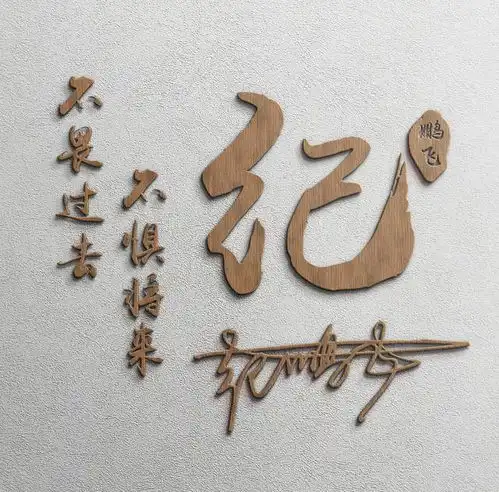 不畏过去
不惧将来
纪
鹏飞